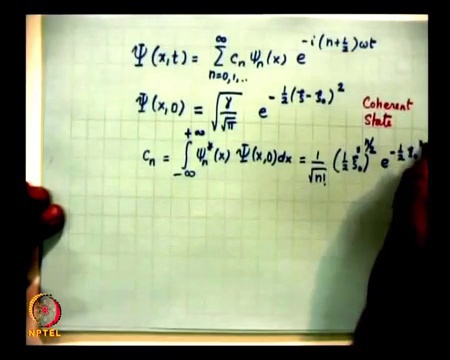 Ψ(x,t) = ∑_{n=0,1,..}^{∞} c_n ψ_n(x) e^{-i(n+½)ωt}
Ψ(x,0) = √(γ/√π) e^{-½(ξ-ξ₀)²}
Coherent
State
c_n = ∫_{-∞}^{+∞} ψ_n*(x) Ψ(x,0)dx = 1/√n! (½ξ₀²)^{n/2} e^{-½ξ₀
NPTEL